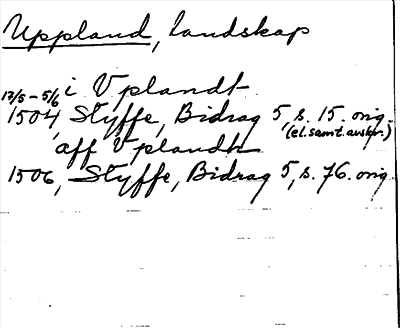 Uppland, landskap
i Vplandt
17/5-5/6
1504, Styffe, Bidrag 5, s. 15. orig.
(el. samt. avskr.)
aff Vplandh
1506, Styffe, Bidrag 5, s. 76. orig.